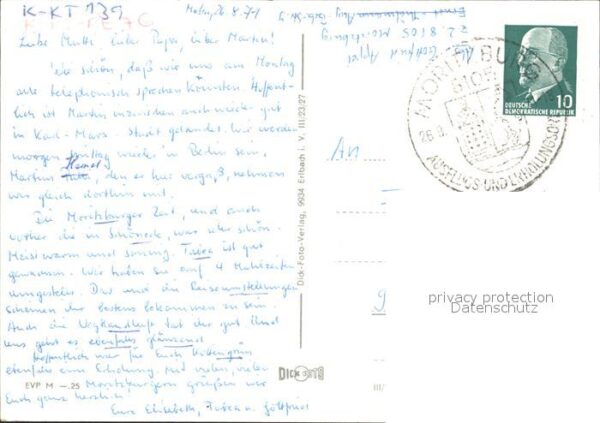 K-KT 139
Liebe Mutti, lieber Papa, lieber Martin!
Wie schön, daß wir uns am Montag
alle telephonisch sprechen konnten. Hoffent-
lich ist Martin inzwischen auch wieder gut
in Karl-Marx-Stadt gelandet. Wir werden
morgen mittag wieder in Berlin sein,
Martins Hemd, den er hier vergaß, nehmen
wir gleich dorthin mit.
Die Moritzburger Zeit, und auch
vorher die in Schöneck, war sehr schön.
Meist warm und sonnig. Tabea ist gut
gewachsen. Wir haben sie auf 4 Mahlzeiten
umgestellt. Das und die Reiseumstellungen
scheinen ihr bestens bekommen zu sein.
Auch die Vogtlandluft tat ihr gut. Und
uns geht es ebenfalls glänzend.
Hoffentlich war für Euch Rottengrün
ebenfalls eine Erholung. Mit vielen, vielen
Moritzburgern grüßen wir
Euch ganz herzlich!
Eure Elisabeth, Tabea u. Gottfried
EVP M -.25
DICK FOTO
Dick-Foto-Verlag, 9934 Erlbach i. V. III/23/27
z.Z. 8105 Moritzburg
An
MORITZBURG
8105
26.8.
AUSFLUGS- UND ERHOLUNGSORT
DEUTSCHE
DEMOKRATISCHE REPUBLIK
10
privacy protection
Datenschutz